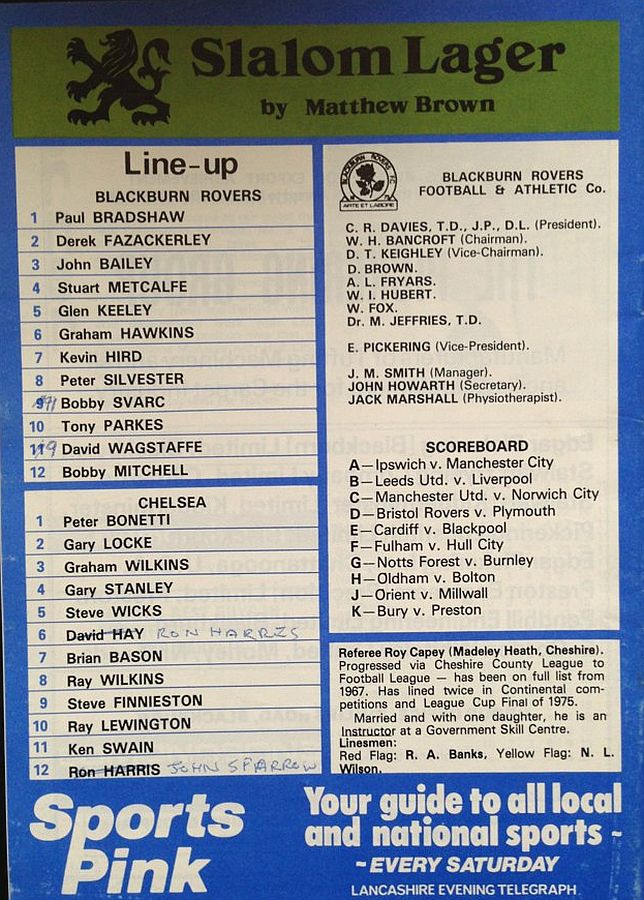 Slalom Lager
by Matthew Brown
Line-up
BLACKBURN ROVERS
1 Paul BRADSHAW
2 Derek FAZACKERLEY
3 John BAILEY
4 Stuart METCALFE
5 Glen KEELEY
6 Graham HAWKINS
7 Kevin HIRD
8 Peter SILVESTER
9 11 Bobby SVARC
10 Tony PARKES
11 9 David WAGSTAFFE
12 Bobby MITCHELL
CHELSEA
1 Peter BONETTI
2 Gary LOCKE
3 Graham WILKINS
4 Gary STANLEY
5 Steve WICKS
6 David HAY RON HARRIS
7 Brian BASON
8 Ray WILKINS
9 Steve FINNIESTON
10 Ray LEWINGTON
11 Ken SWAIN
12 Ron HARRIS JOHN SPARROW
BLACKBURN ROVERS F.C.
ARTE ET LABORE
BLACKBURN ROVERS
FOOTBALL & ATHLETIC Co.
C. R. DAVIES, T.D., J.P., D.L. (President).
W. H. BANCROFT (Chairman).
D. T. KEIGHLEY (Vice-Chairman).
D. BROWN.
A. L. FRYARS.
W. I. HUBERT.
W. FOX.
Dr. M. JEFFRIES, T.D.
E. PICKERING (Vice-President).
J. M. SMITH (Manager).
JOHN HOWARTH (Secretary).
JACK MARSHALL (Physiotherapist).
SCOREBOARD
A—Ipswich v. Manchester City
B—Leeds Utd. v. Liverpool
C—Manchester Utd. v. Norwich City
D—Bristol Rovers v. Plymouth
E—Cardiff v. Blackpool
F—Fulham v. Hull City
G—Notts Forest v. Burnley
H—Oldham v. Bolton
J—Orient v. Millwall
K—Bury v. Preston
Referee Roy Capey (Madeley Heath, Cheshire).
Progressed via Cheshire County League to
Football League — has been on full list from
1967. Has lined twice in Continental com-
petitions and League Cup Final of 1975.
Married and with one daughter, he is an
Instructor at a Government Skill Centre.
Linesmen:
Red Flag: R. A. Banks, Yellow Flag: N. L.
Wilson.
Sports
Pink
Your guide to all local
and national sports ~
~ EVERY SATURDAY
LANCASHIRE EVENING TELEGRAPH